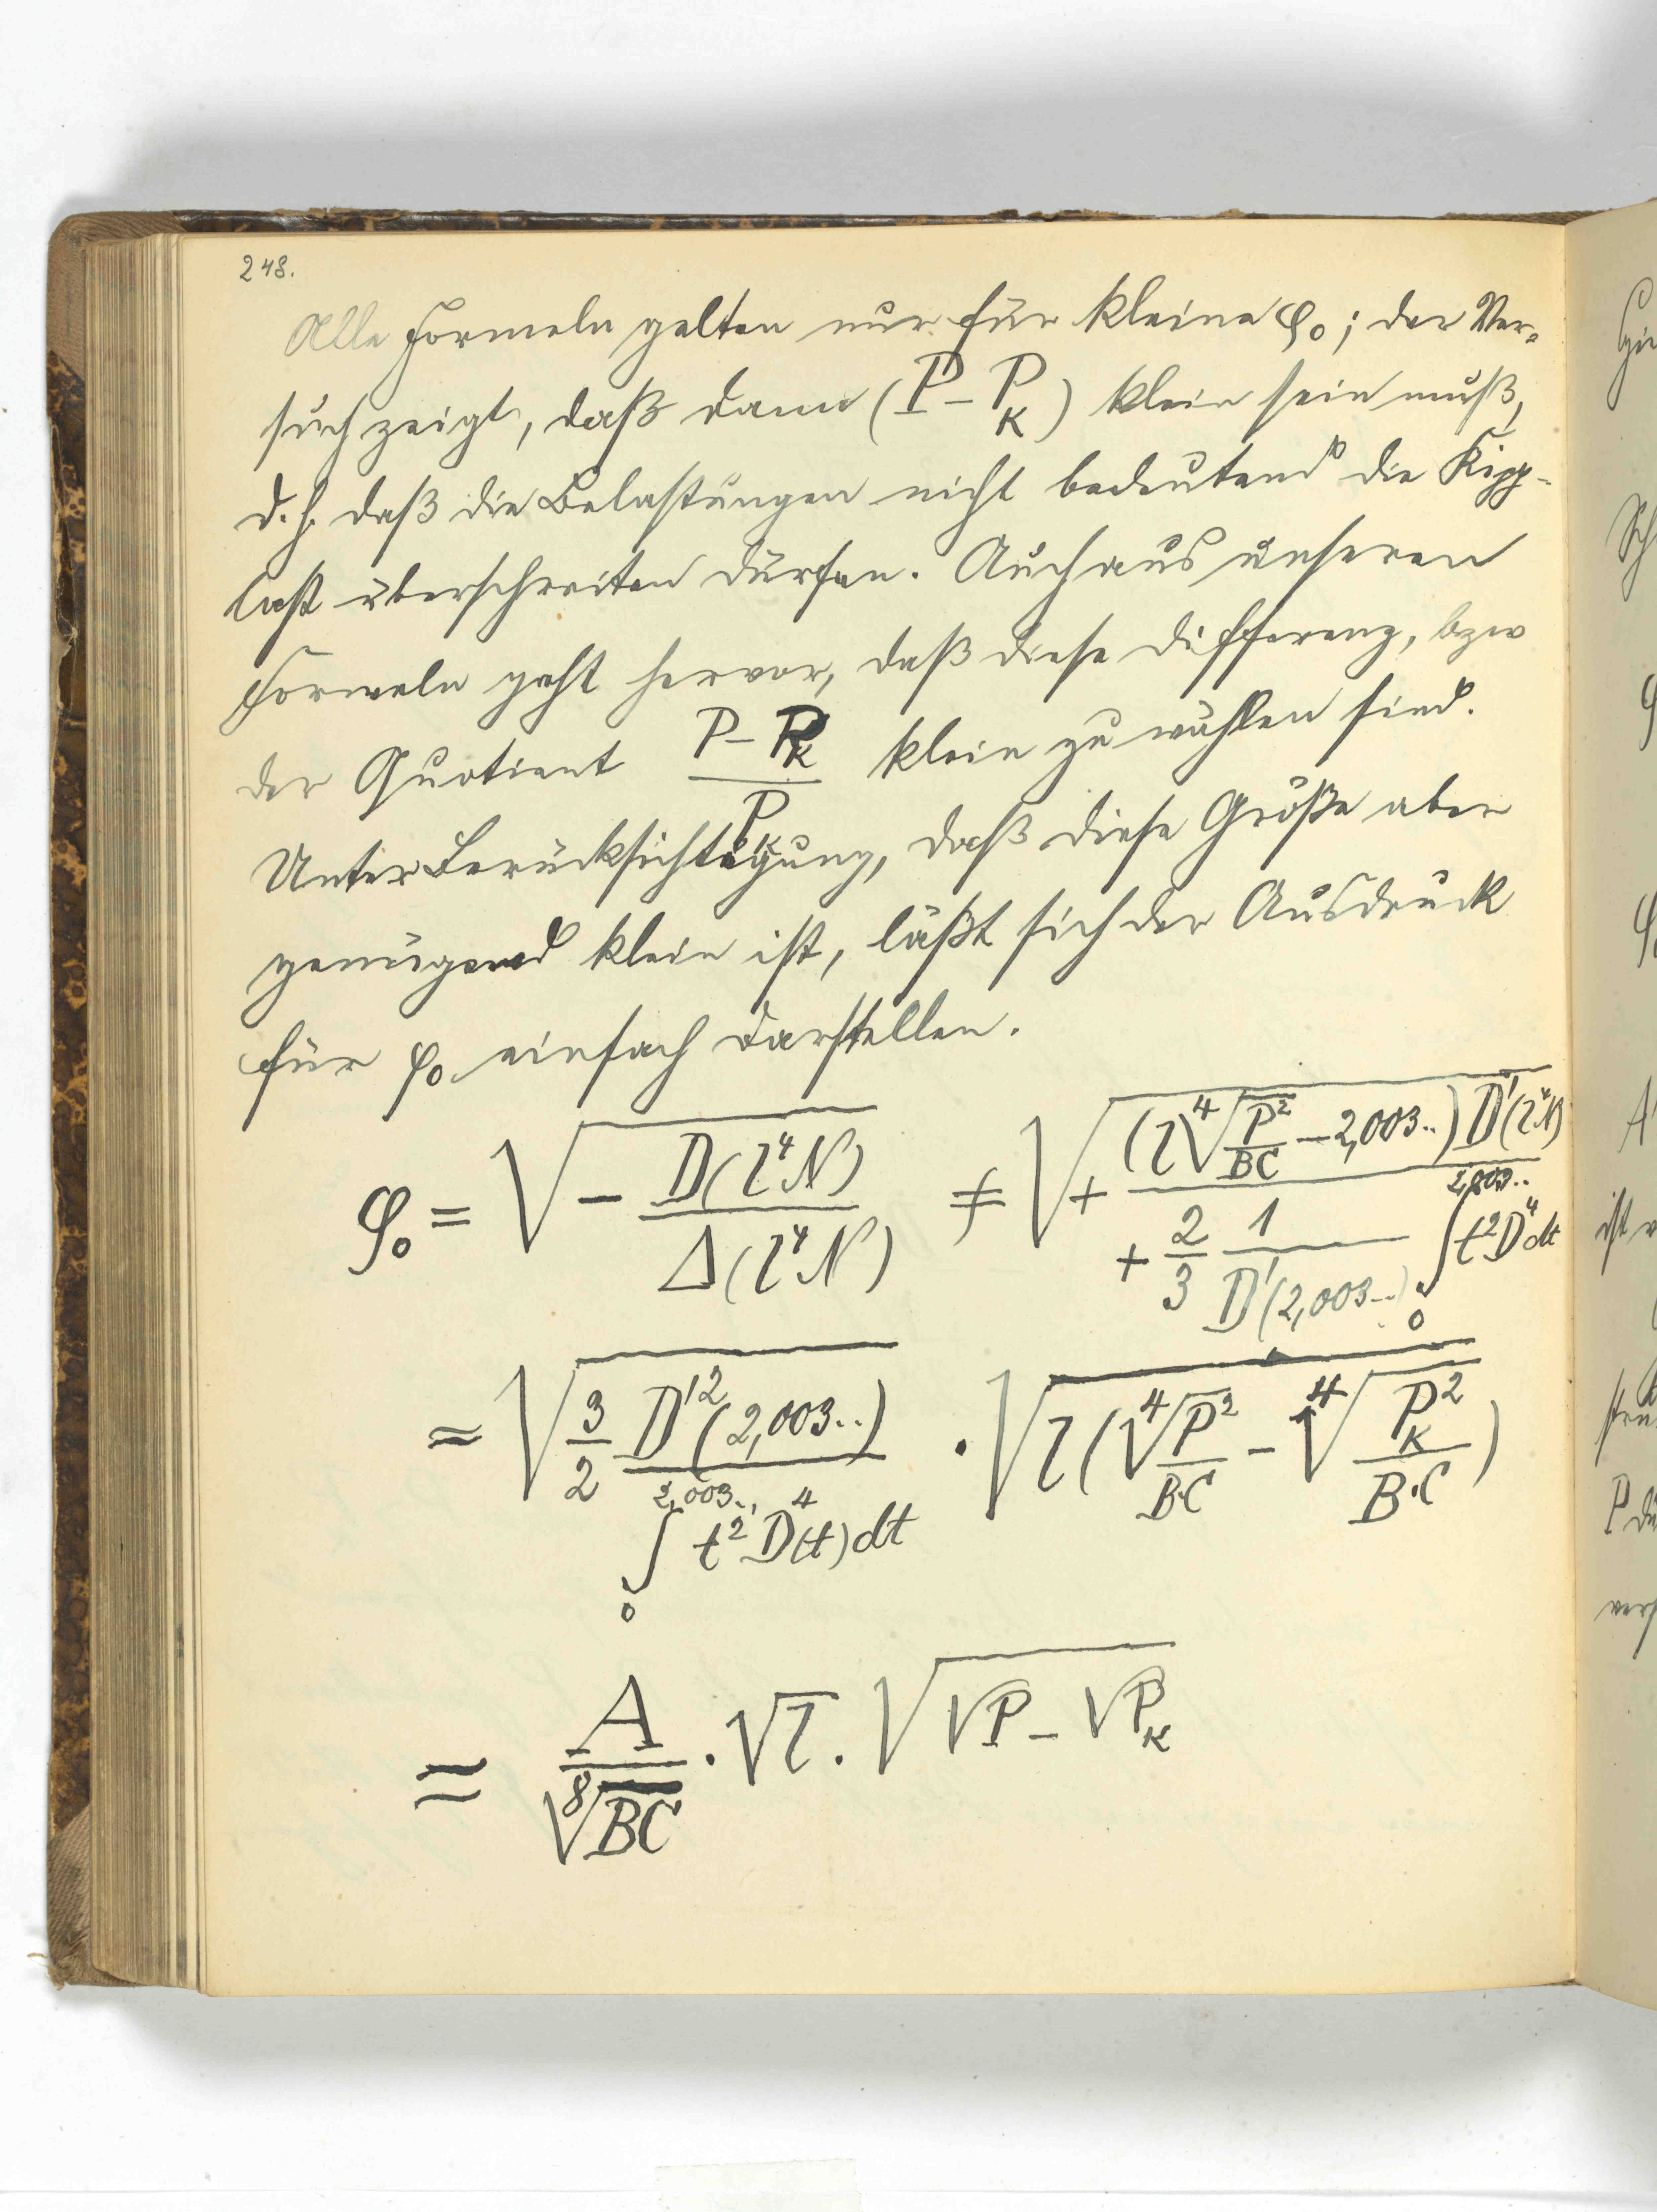 248.
Alle Formeln gelten nur für kleine φ₀; der Ver-
such zeigt, daß dann (P - P_K) klein sein muß,
d. h. daß die Belastungen nicht bedeutend die Kipp-
last überschreiten dürfen. Auch aus unseren
Formeln geht hervor, daß diese Differenz, bzw
der Quotient (P - P_K)/P_K klein zu wählen sind.
Unter Berücksichtigung, daß diese Größe aber
genügend klein ist, läßt sich der Ausdruck
für φ₀ einfach darstellen.
φ₀ = √(- D(l⁴N)/Δ(l⁴N)) ≠ √(+ (l ⁴√(P²/BC) - 2,003..) D'(l⁴N) / (+ 2/3 1/D'(2,003..) ∫₀^2,003.. t² D⁴ dt))
= √(3/2 D'²(2,003..) / ∫₀^2,003.. t² D⁴(t) dt) · √(l (⁴√(P²/B·C) - ⁴√(P_K²/B·C)))
= A/⁸√(BC) · √l · √(√P - √P_K)